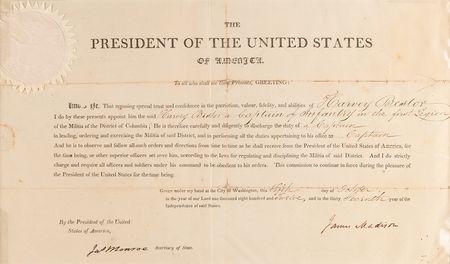 THE
PRESIDENT OF THE UNITED STATES
OF AMERICA.
To all who shall see these Presents, GREETING:
Know Ye, That reposing special trust and confidence in the patriotism, valour, fidelity, and abilities of Harvey
I do by these presents appoint him the said Harvey a Captain of Infantry in the first Legion
of the Militia of the District of Columbia; He is therefore carefully and diligently to discharge the duty of a Captain
in leading, ordering and exercising the Militia of said District, and in performing all the duties appertaining to his office as Captain
And he is to observe and follow all such orders and directions from time to time as he shall receive from the President of the United States of America, for
the time being, or other superior officers set over him, according to the laws for regulating and disciplining the Militia of said District. And I do strictly
charge and require all officers and soldiers under his command to be obedient to his orders. This commission to continue in force during the pleasure of
the President of the United States for the time being.
Given under my hand at the City of Washington, this day of
in the year of our Lord one thousand eight hundred and twelve, and in the thirty seventh year of the
Independence of said States.
By the President of the United
States of America,
James Madison
Jas Monroe Secretary of State.